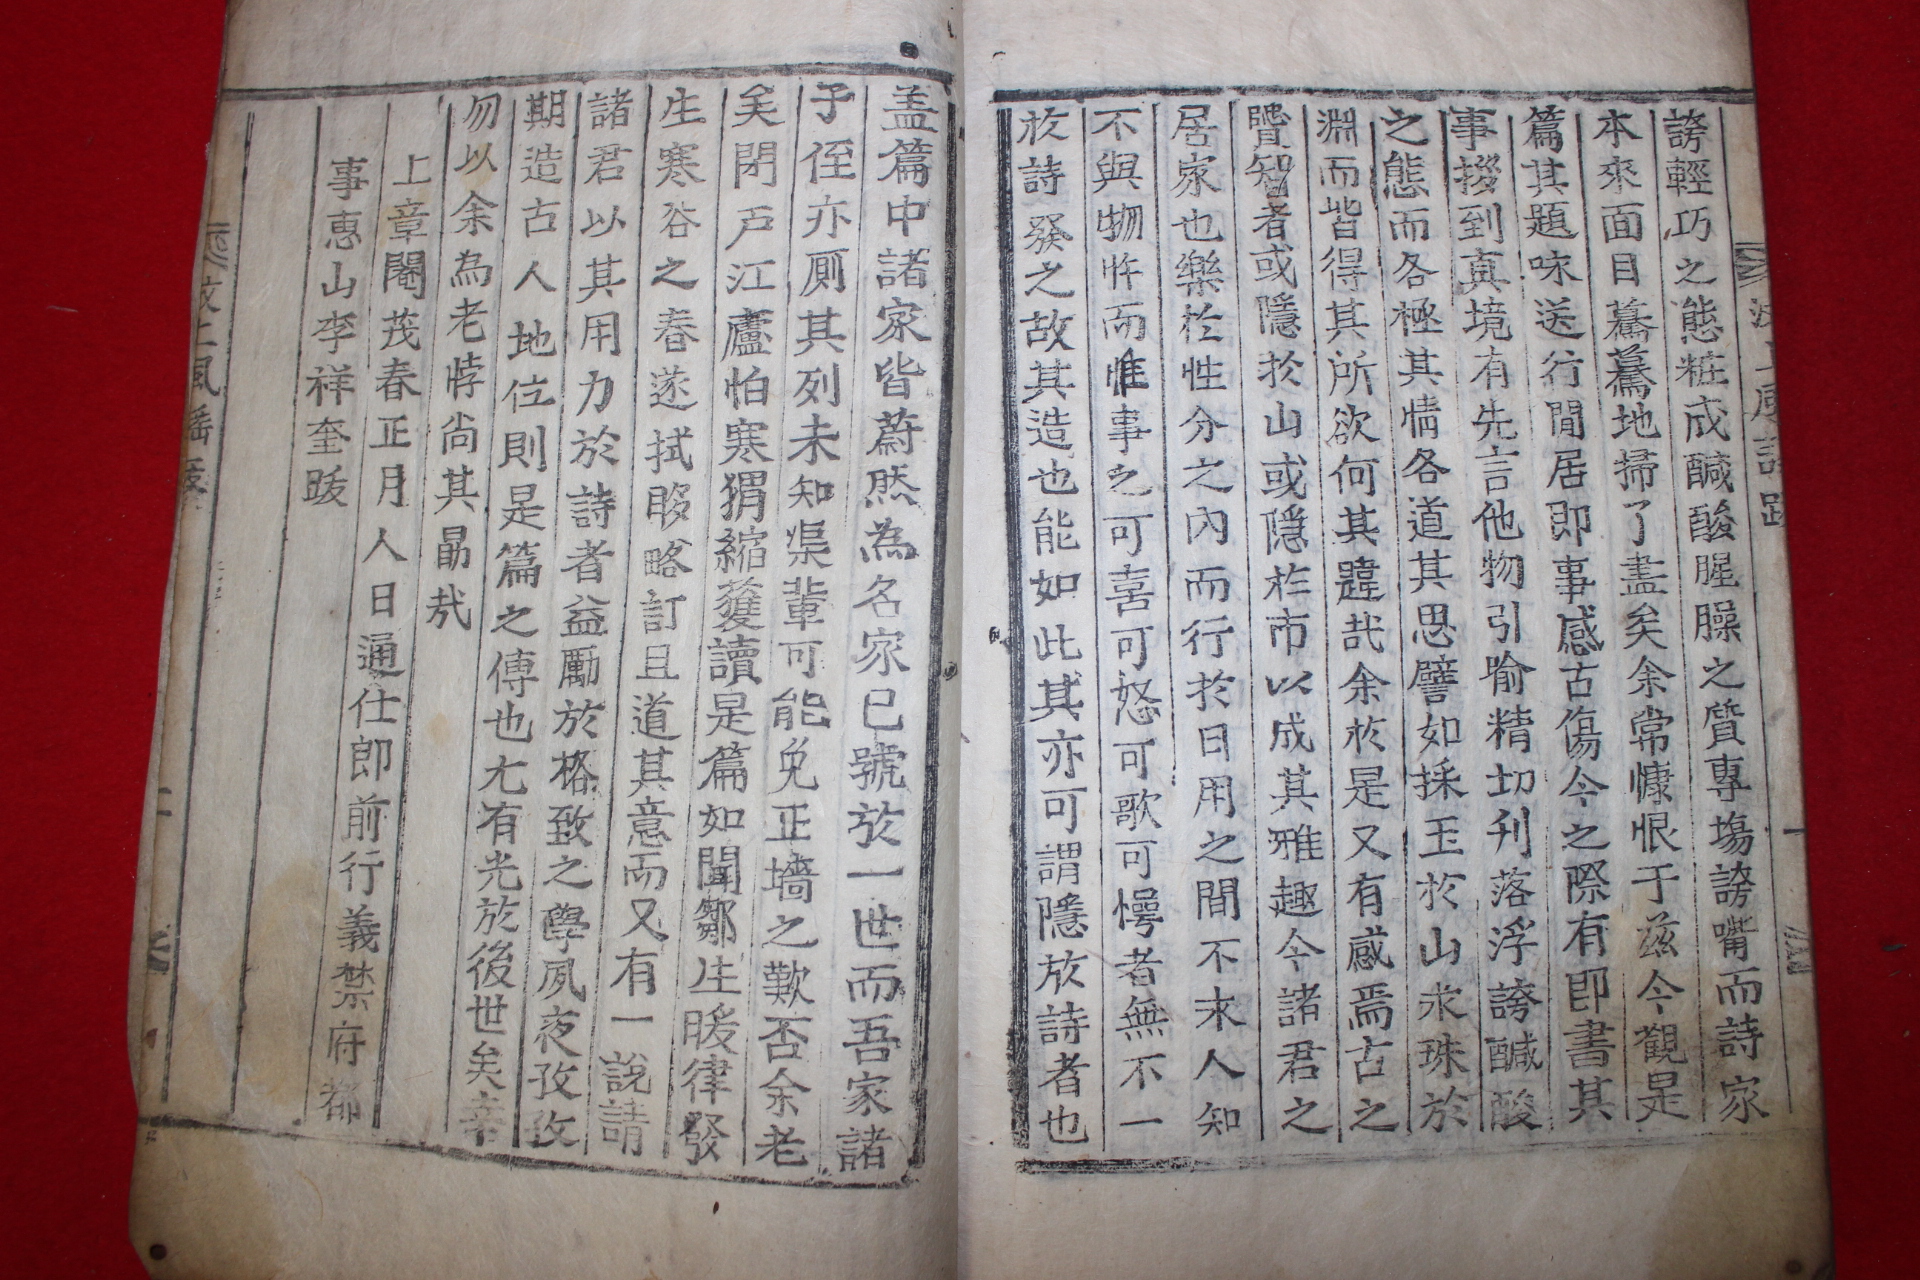 誇輕巧之態粧成醎酸腥臊之質專塲誇嘴而詩家
本來面目驀驀地掃了盡矣余常慷恨于兹今觀是
篇其題咏送行閒居即事感古傷今之際有即書其
事撥到真境有先言他物引喻精切刋落浮誇醎酸
之態而各極其情各道其思譬如採玉於山求珠於
淵而皆得其所欲何其韙哉余於是又有感焉古之
贒智者或隱於山或隱於市以成其雅趣今諸君之
居家也樂於性分之內而行於日用之間不求人知
不與物忤而惟事之可喜可怒可歌可愕者無不一
於詩發之故其造也能如此其亦可謂隱於詩者也
盖篇中諸家皆蔚然為名家已號於一世而吾家諸
予侄亦廁其列未知渠輩可能免正墻之歎否余老
矣閉戶江廬怕寒猬縮獲讀是篇如聞鄒生暖律發
生寒谷之春遂拭眵略訂且道其意而又有一說請
諸君以其用力於詩者益勵於格致之學夙夜孜孜
期造古人地位則是篇之傳也尢有光於後世矣幸
勿以余為老悖尙其勗㢤
上章閹茂春正月人日通仕郞前行義禁府都
事惠山李祥奎跋